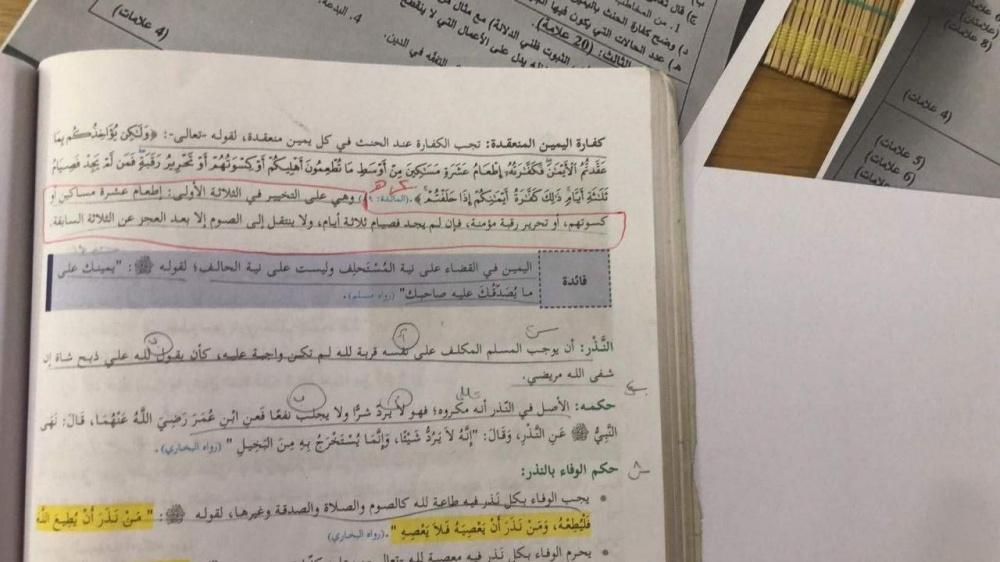 ج) وضح كفارة الحنث باليمين
د) عدد الحالات التي يكون فيها
الثالث: (20 علامة)
4. البدعة.
(4 علامات)
(8 علامات)
(4 علامات)
(5 علامات)
(6 علامات)
كفارة اليمين المنعقدة: تجب الكفارة عند الحنث في كل يمين منعقدة، لقوله -تعالى-: ﴿وَلَٰكِن يُؤَاخِذُكُم بِمَا
عَقَّدتُّمُ الْأَيْمَٰنَ فَكَفَّٰرَتُهُ إِطْعَامُ عَشَرَةِ مَسَٰكِينَ مِنْ أَوْسَطِ مَا تُطْعِمُونَ أَهْلِيكُمْ أَوْ كِسْوَتُهُمْ أَوْ تَحْرِيرُ رَقَبَةٍ فَمَن لَّمْ يَجِدْ فَصِيَامُ
ثَلَٰثَةِ أَيَّامٍ ذَٰلِكَ كَفَّٰرَةُ أَيْمَٰنِكُمْ إِذَا حَلَفْتُمْ﴾. (المائدة: ) وهي على التخيير في الثلاثة الأولى: إطعام عشرة مساكين أو
كسوتهم، أو تحرير رقبة مؤمنة، فإن لم يجد فصيام ثلاثة أيام، ولا ينتقل إلى الصوم إلا بعد العجز عن الثلاثة السابقة.
فائدة
اليمين في القضاء على نية المُسْتَحلِف وليست على نية الحالف؛ لقوله ﷺ: "يمينك على
ما يُصَدِّقُكَ عليه صاحبك" (رواه مسلم).
النَّذْر: أن يوجب المسلم المكلف على نفسه قربة لله لم تكن واجبة عليه، كأن يقول لله علي ذبح شاة إن
شفى الله مريضي.
حكمه: الأصل في النّذر أنه مكروه؛ فهو لا يردّ شرًّا ولا يجلب نفعًا فعن ابنِ عُمَرَ رَضِيَ اللَّهُ عَنْهُمَا، قَالَ: نَهَى
النَّبِيُّ ﷺ عَنِ النَّذْرِ، وَقَالَ: "إِنَّهُ لاَ يَرُدُّ شَيْئًا، وَإِنَّمَا يُسْتَخْرَجُ بِهِ مِنَ البَخِيلِ" (رواه البخاري).
حكم الوفاء بالنذر:
• يجب الوفاء بكل نَذر فيه طاعة لله كالصوم والصلاة والصدقة وغيرها، لقوله ﷺ: "مَنْ نَذَرَ أَنْ يُطِيعَ اللَّهَ
فَلْيُطِعْهُ، وَمَنْ نَذَرَ أَنْ يَعْصِيَهُ فَلاَ يَعْصِهِ". (رواه البخاري)
• يحرم الوفاء بكل نَذر فيه معصية لله